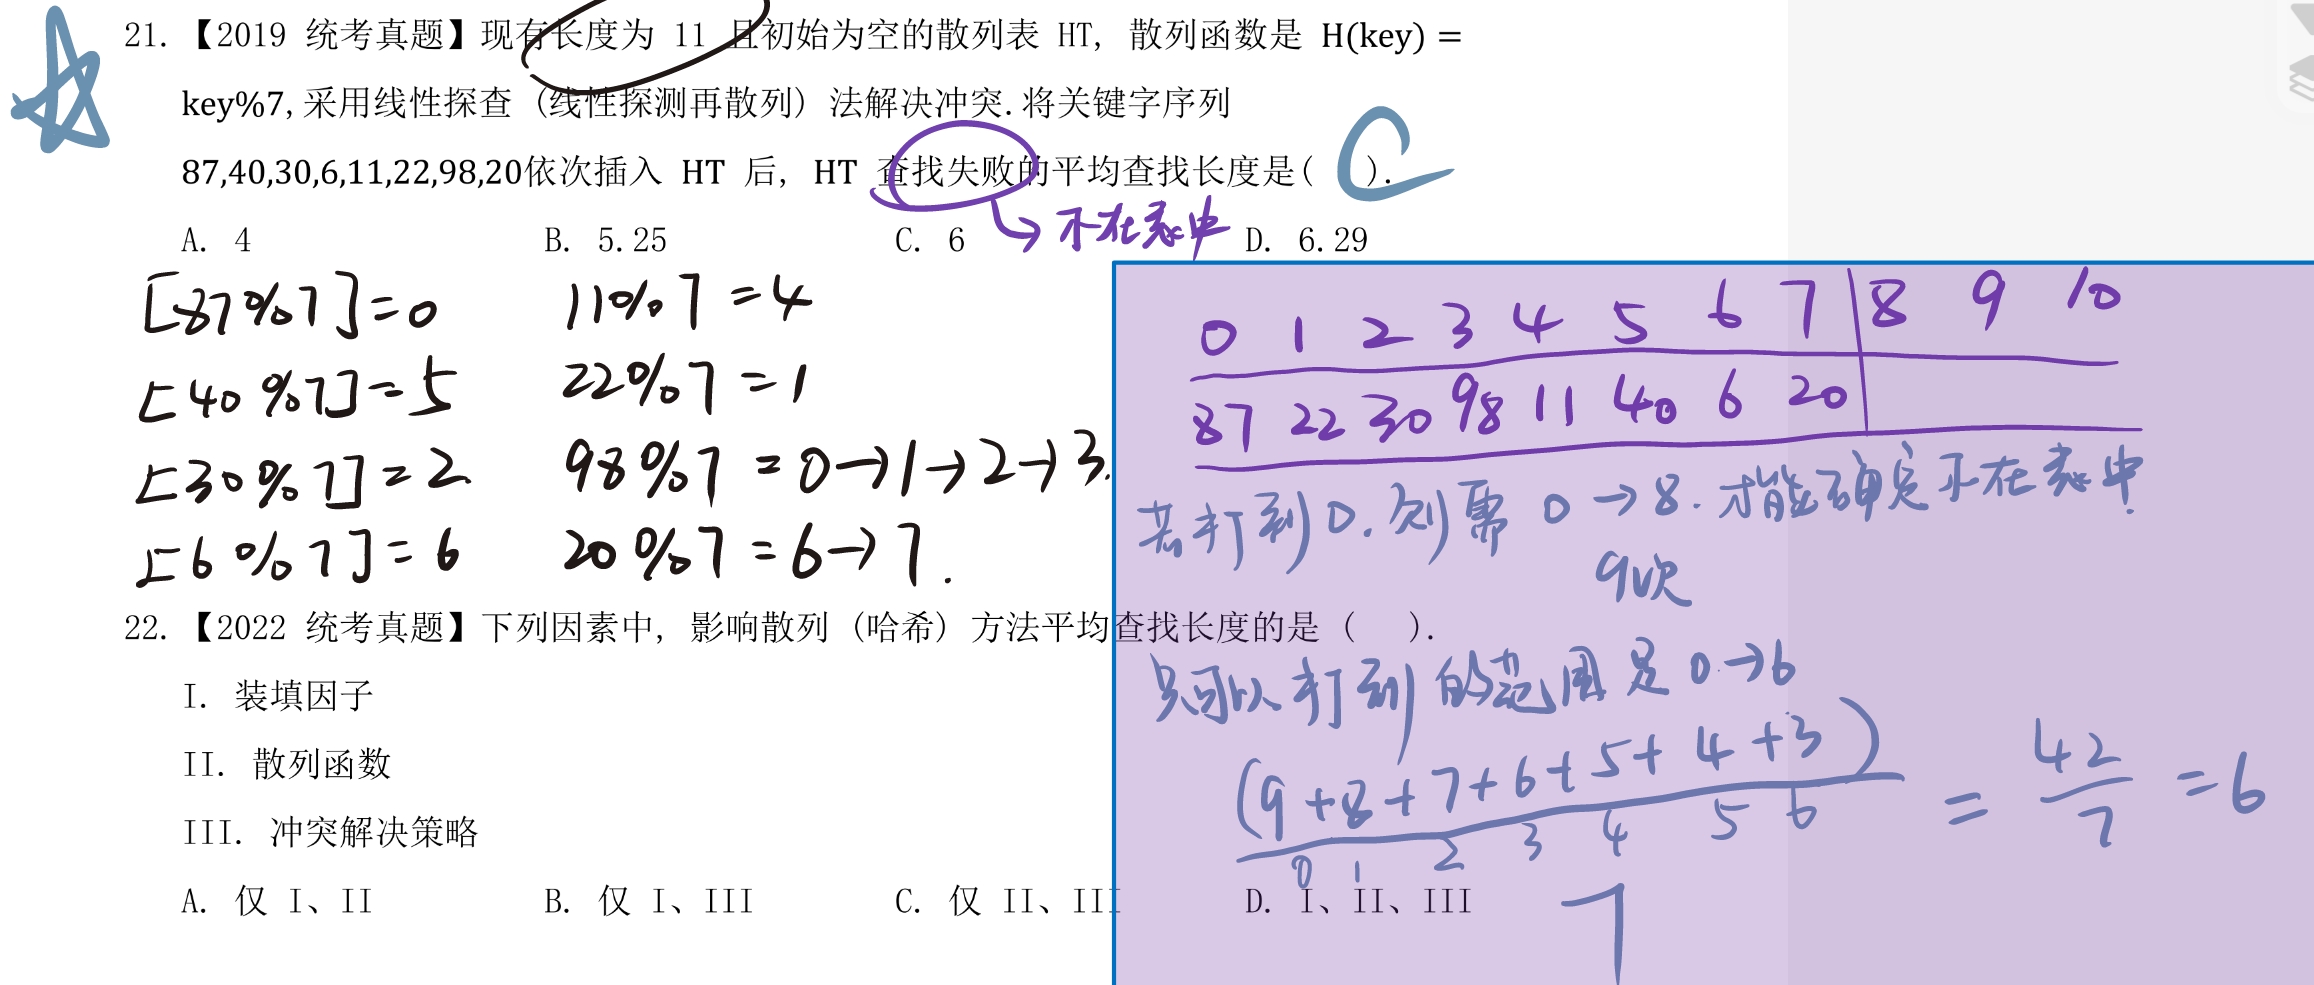 21. 【2019 统考真题】现有长度为 11 且初始为空的散列表 HT, 散列函数是 H(key) =
key%7, 采用线性探查（线性探测再散列）法解决冲突. 将关键字序列
87,40,30,6,11,22,98,20依次插入 HT 后, HT 查找失败的平均查找长度是( C ).
→ 不在表中
A. 4 B. 5.25 C. 6 D. 6.29
[87%7]=0 11%7=4
[40%7]=5 22%7=1
[30%7]=2 98%7=0→1→2→3.
[6%7]=6 20%7=6→7.
0 1 2 3 4 5 6 7 8 9 10
87 22 30 98 11 40 6 20
若打到0.则需 0→8.才能确定不在表中.
9次
只可以打到的范围是0→6
(9+8+7+6+5+4+3) = 42/7 =6
0 1 2 3 4 5 6
7
22. 【2022 统考真题】下列因素中, 影响散列（哈希）方法平均查找长度的是（ ）.
I. 装填因子
II. 散列函数
III. 冲突解决策略
A. 仅 I、II B. 仅 I、III C. 仅 II、III D. I、II、III